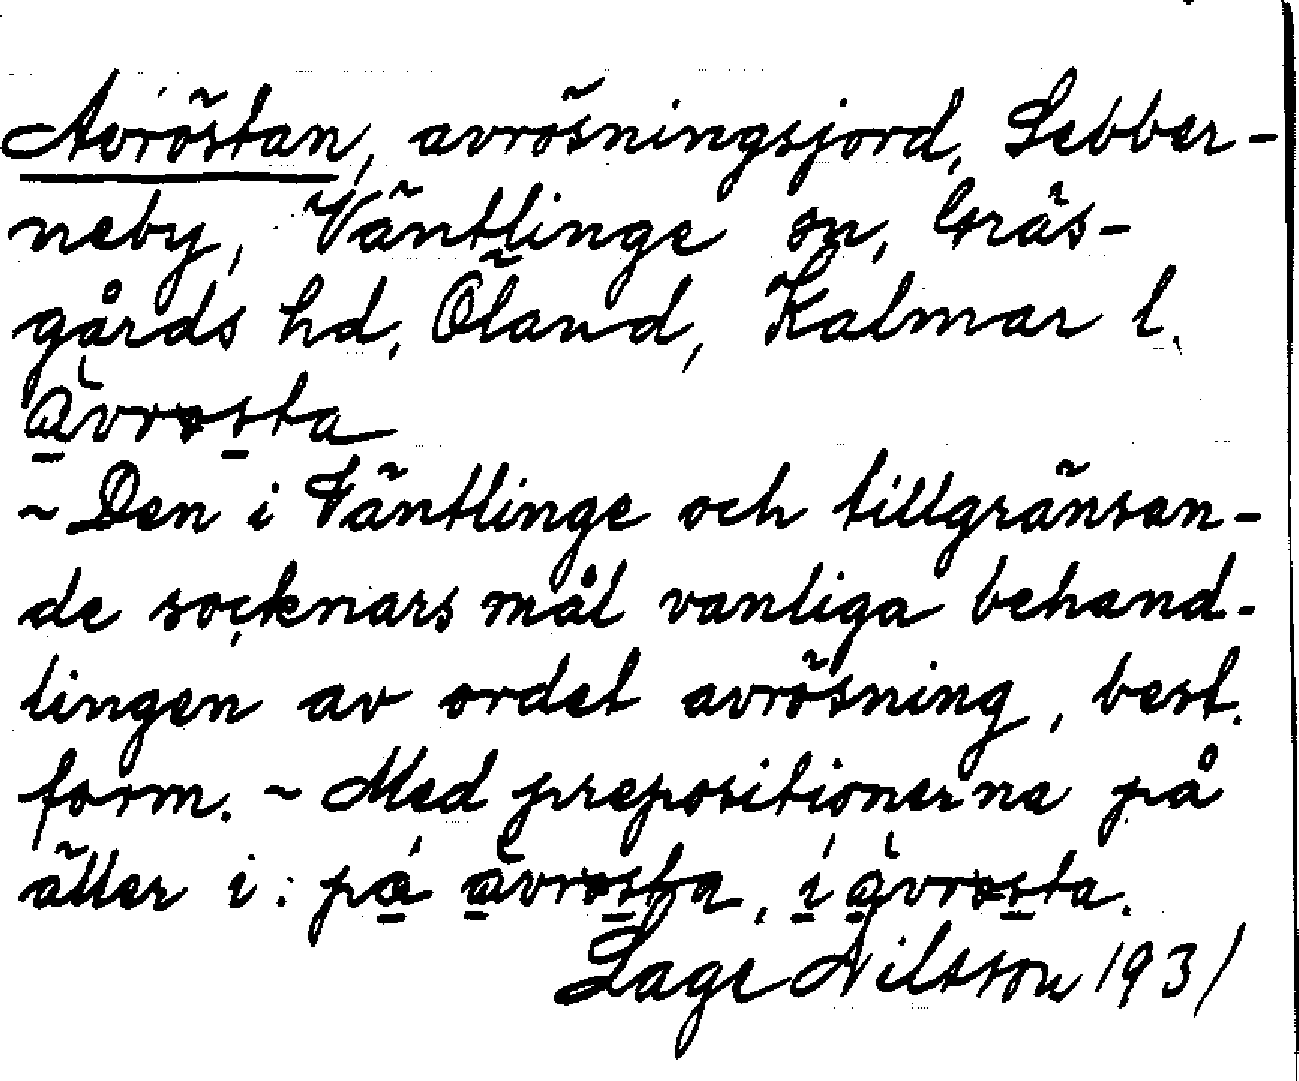 Avröstan, avrösningsjord, Sebber-
neby, Väntlinge sn, Gräs-
gårds hd, Öland, Kalmar l.
àvrosta
~ Den i Väntlinge och tillgränsan-
de socknars mål vanliga behand-
lingen av ordet avrösning, best.
form. ~ Med prepositionerna på
äller i: på àvrosta, i àvrosta.
Lage Nilsson 1931